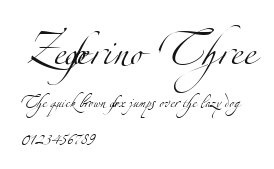 Zeferino Three
The quick brown fox jumps over the lazy dog
0123456789